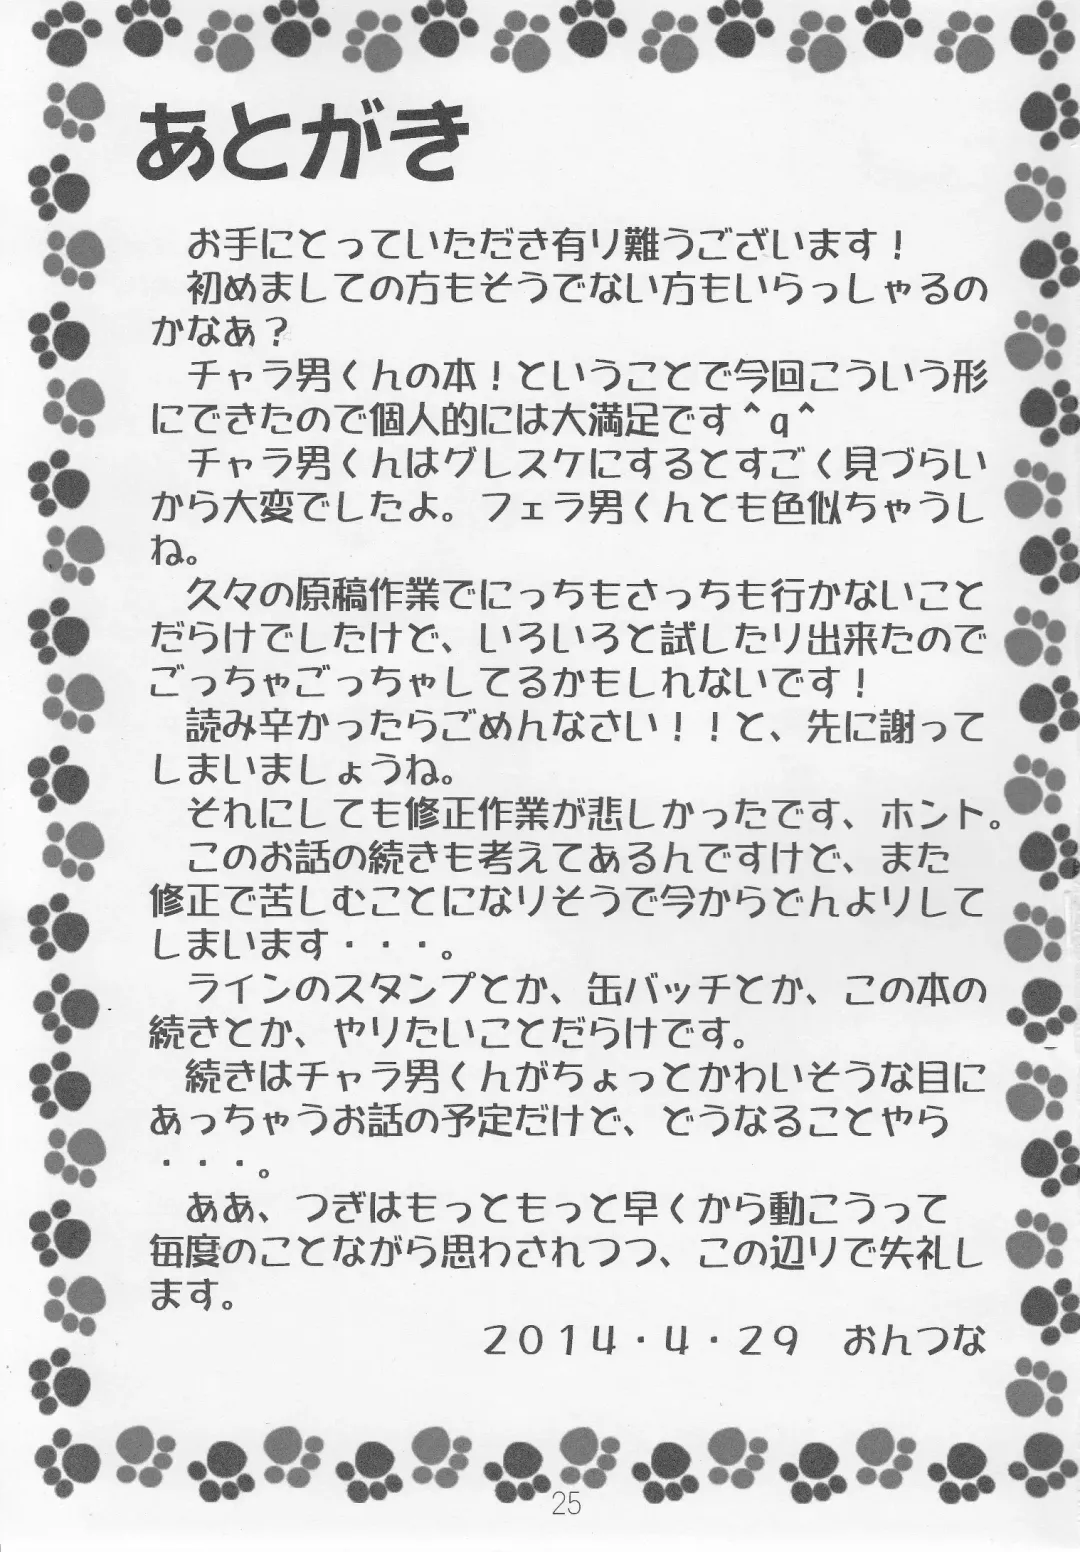 あとがき
お手にとっていただき有り難うございます！
初めましての方もそうでない方もいらっしゃるの
かなあ？
チャラ男くんの本！ということで今回こういう形
にできたので個人的には大満足です＾q＾
チャラ男くんはグレスケにするとすごく見づらい
から大変でしたよ。フェラ男くんとも色似ちゃうし
ね。
久々の原稿作業でにっちもさっちも行かないこと
だらけでしたけど、いろいろと試したり出来たので
ごっちゃごっちゃしてるかもしれないです！
読み辛かったらごめんなさい！！と、先に謝って
しまいましょうね。
それにしても修正作業が悲しかったです、ホント。
このお話の続きも考えてあるんですけど、また
修正で苦しむことになりそうで今からどんよりして
しまいます・・・。
ラインのスタンプとか、缶バッチとか、この本の
続きとか、やりたいことだらけです。
続きはチャラ男くんがちょっとかわいそうな目に
あっちゃうお話の予定だけど、どうなることやら
・・・。
ああ、つぎはもっともっと早くから動こうって
毎度のことながら思わされつつ、この辺りで失礼し
ます。
２０１４・４・２９　おんつな
25